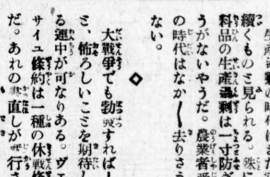 續くものと見られる。殊に
料品の生産過剩は一寸防ぎ
うがないやうだ。農業者
の時代はなか〱去りさう
ない。
◇
大戰爭でも勃發すれば
と、怖ろしいことを期待し
る連中が可なりある。ヴェ
サイユ條約は一種の休戰
だ。あれの直しが行